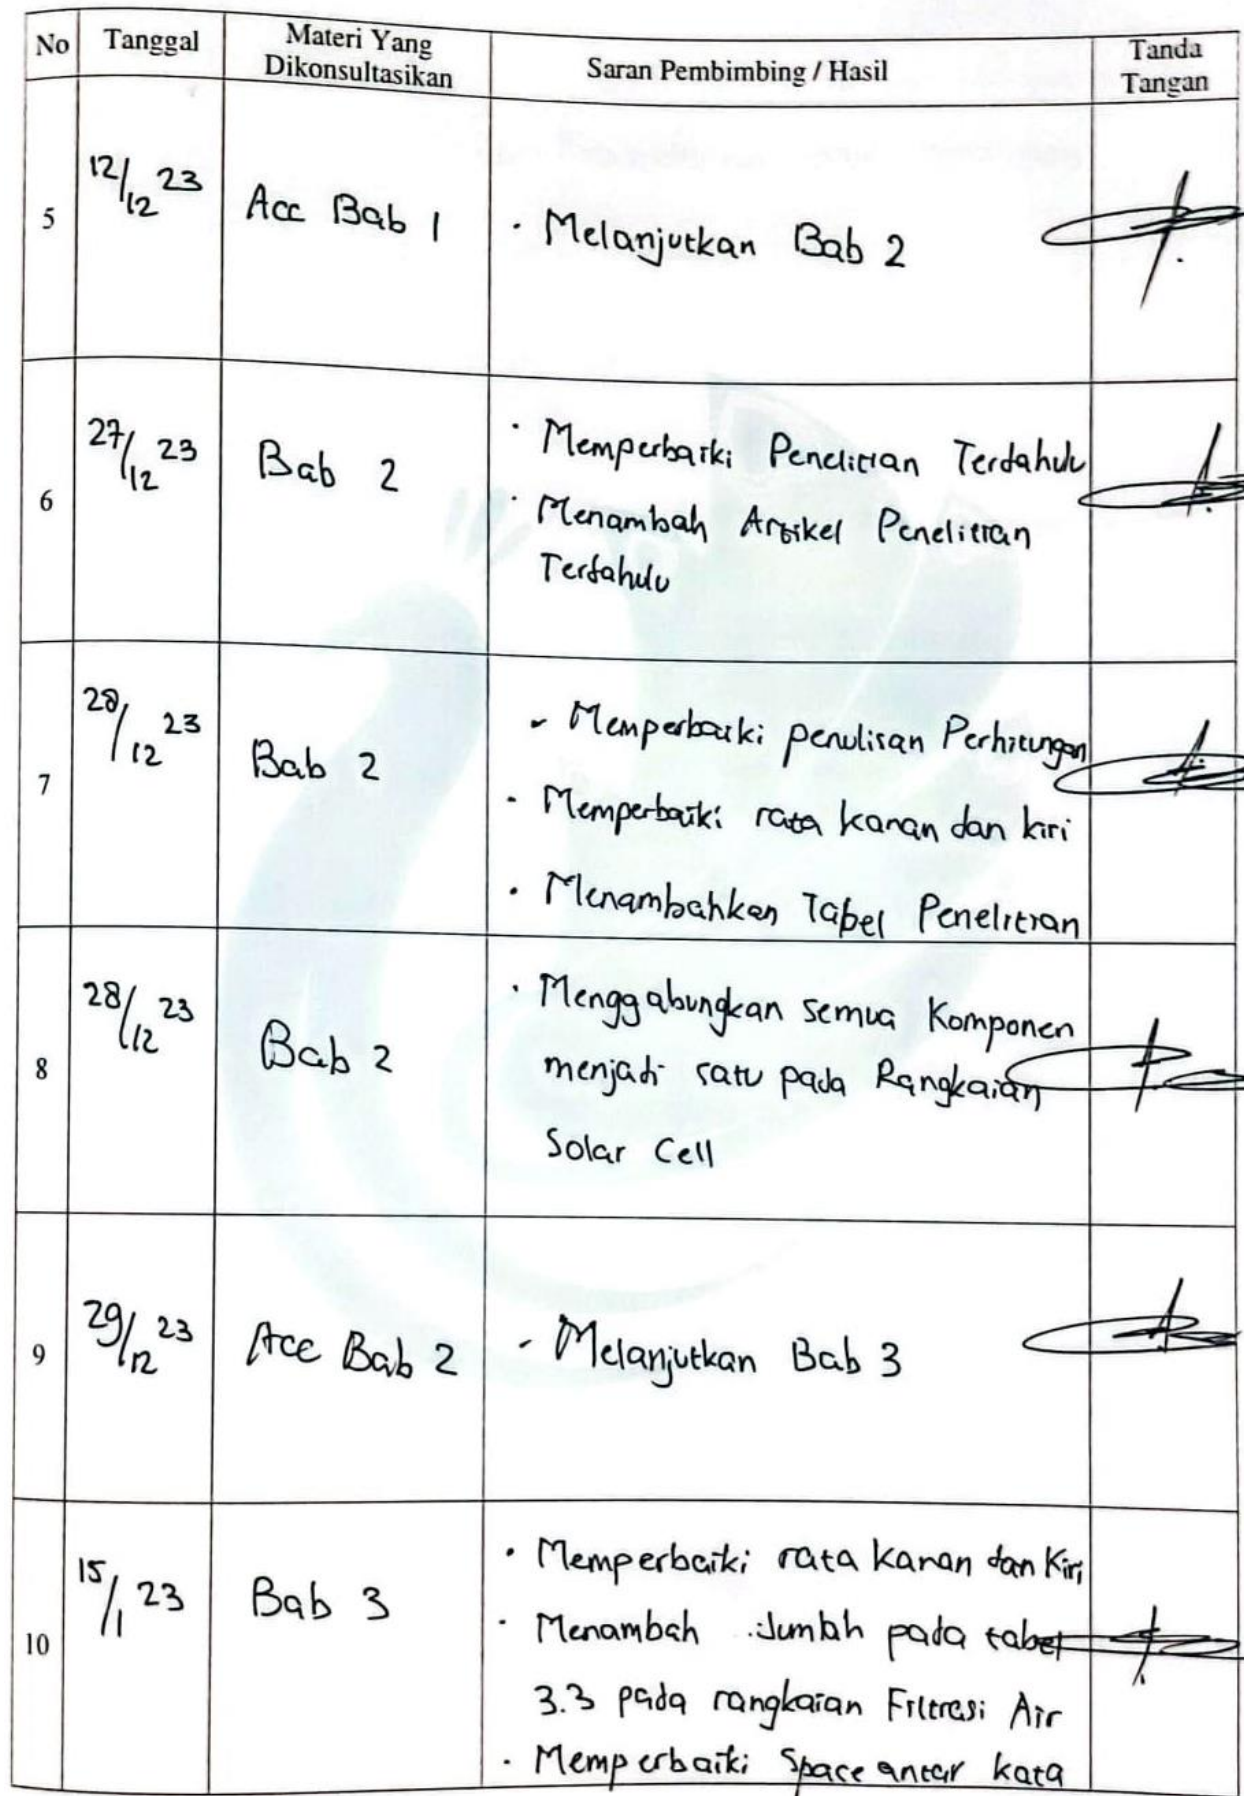 No Tanggal Materi Yang Dikonsultasikan Saran Pembimbing / Hasil Tanda Tangan
5 12/12 23 Acc Bab 1 · Melanjutkan Bab 2
6 27/12 23 Bab 2 · Memperbaiki Penelitian Terdahulu
· Menambah Artikel Penelitian
Terdahulu
7 28/12 23 Bab 2 - Memperbaiki penulisan Perhitungan
· Memperbaiki rata kanan dan kiri
· Menambahkan Tabel Penelitian
8 28/12 23 Bab 2 · Menggabungkan semua Komponen
menjadi satu pada Rangkaian
Solar Cell
9 29/12 23 Acc Bab 2 - Melanjutkan Bab 3
10 15/1 23 Bab 3 · Memperbaiki rata kanan dan Kiri
· Menambah Jumlah pada tabel
3.3 pada rangkaian Filtrasi Air
· Memperbaiki Space antar kata